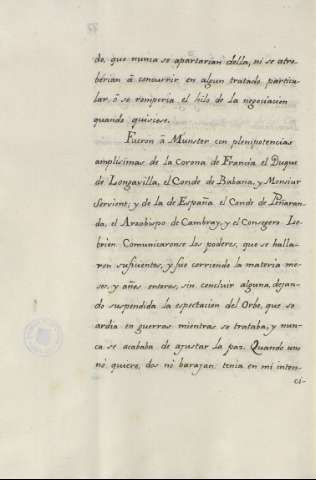 do, que nunca se apartarian della, ni se atre-
berian â concurrir en algun tratado particu-
lar, ô se romperia el hilo de la negociacion
quando quisiese.
Fueron â Munster con plenipotencias
amplisimas de la Corona de Francia el Duque
de Longavilla, el Conde de Babana, y Monsiur
Servient; y de la de España el Conde de Peñaran-
da, el Arzobispo de Cambray, y el Consegero Le-
brien. Comunicaronse los poderes, que se halla-
ron suficientes, y fue corriendo la materia me-
ses, y años enteros, sin concluir alguna, dejan-
do suspendida la espectacion del Orbe, que se
ardia en guerras mientras se trataba, y nun-
ca se acababa de ajustar la paz. Quando uno
no quiere, dos no barajan: tenia en mi inten-
ci-